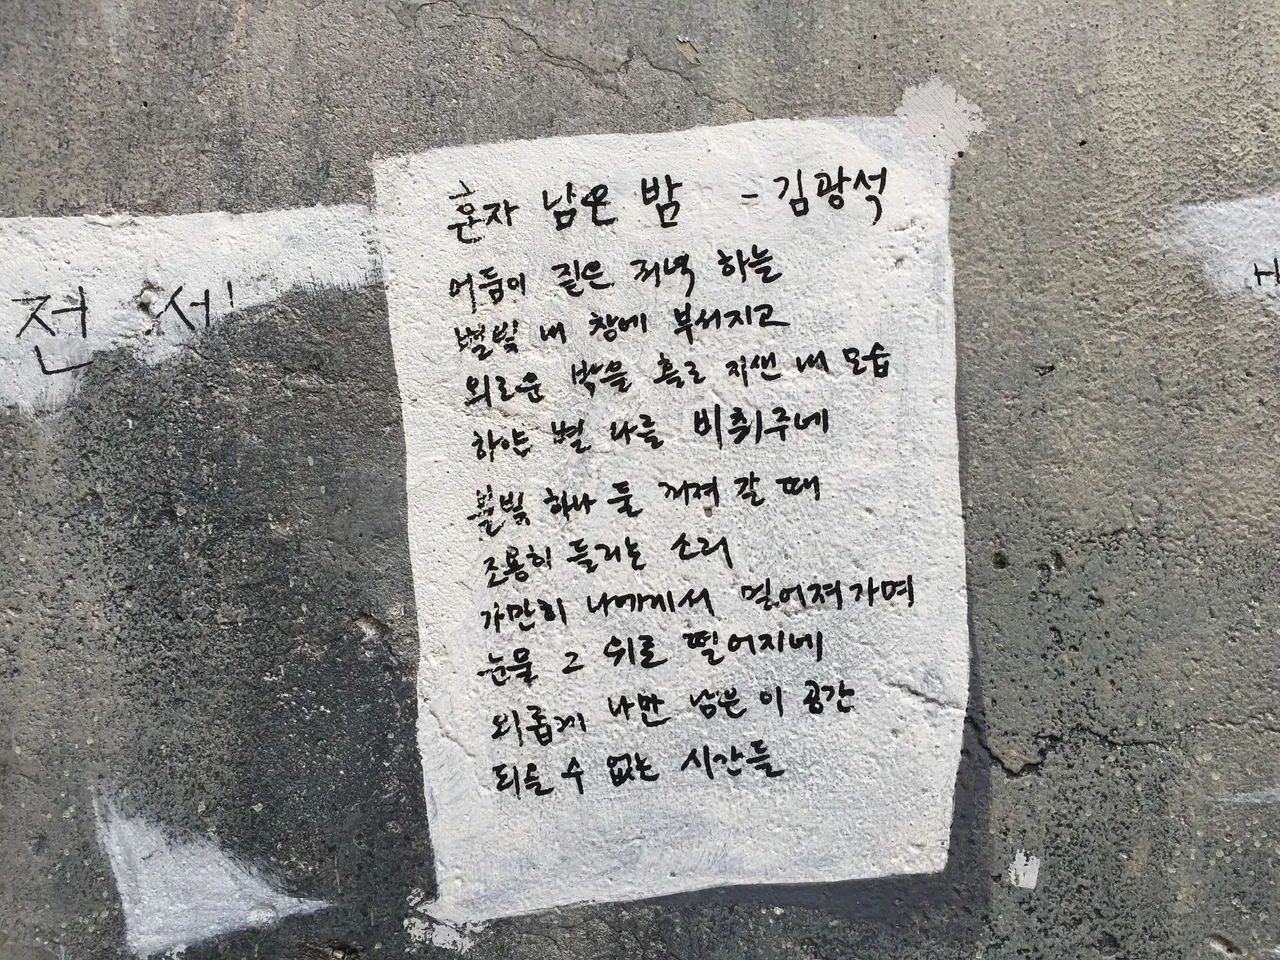 혼자 남은 밤 - 김광석
어둠이 짙은 저녁 하늘
별빛 내 창에 부서지고
외로운 밤을 홀로 지샌 내 모습
하얀 별 나를 비춰주네
불빛 하나 둘 꺼져 갈 때
조용히 들리는 소리
가만히 나에게서 멀어져가며
눈물 그 위로 떨어지네
외롭게 나만 남은 이 공간
되올 수 없는 시간들
전세